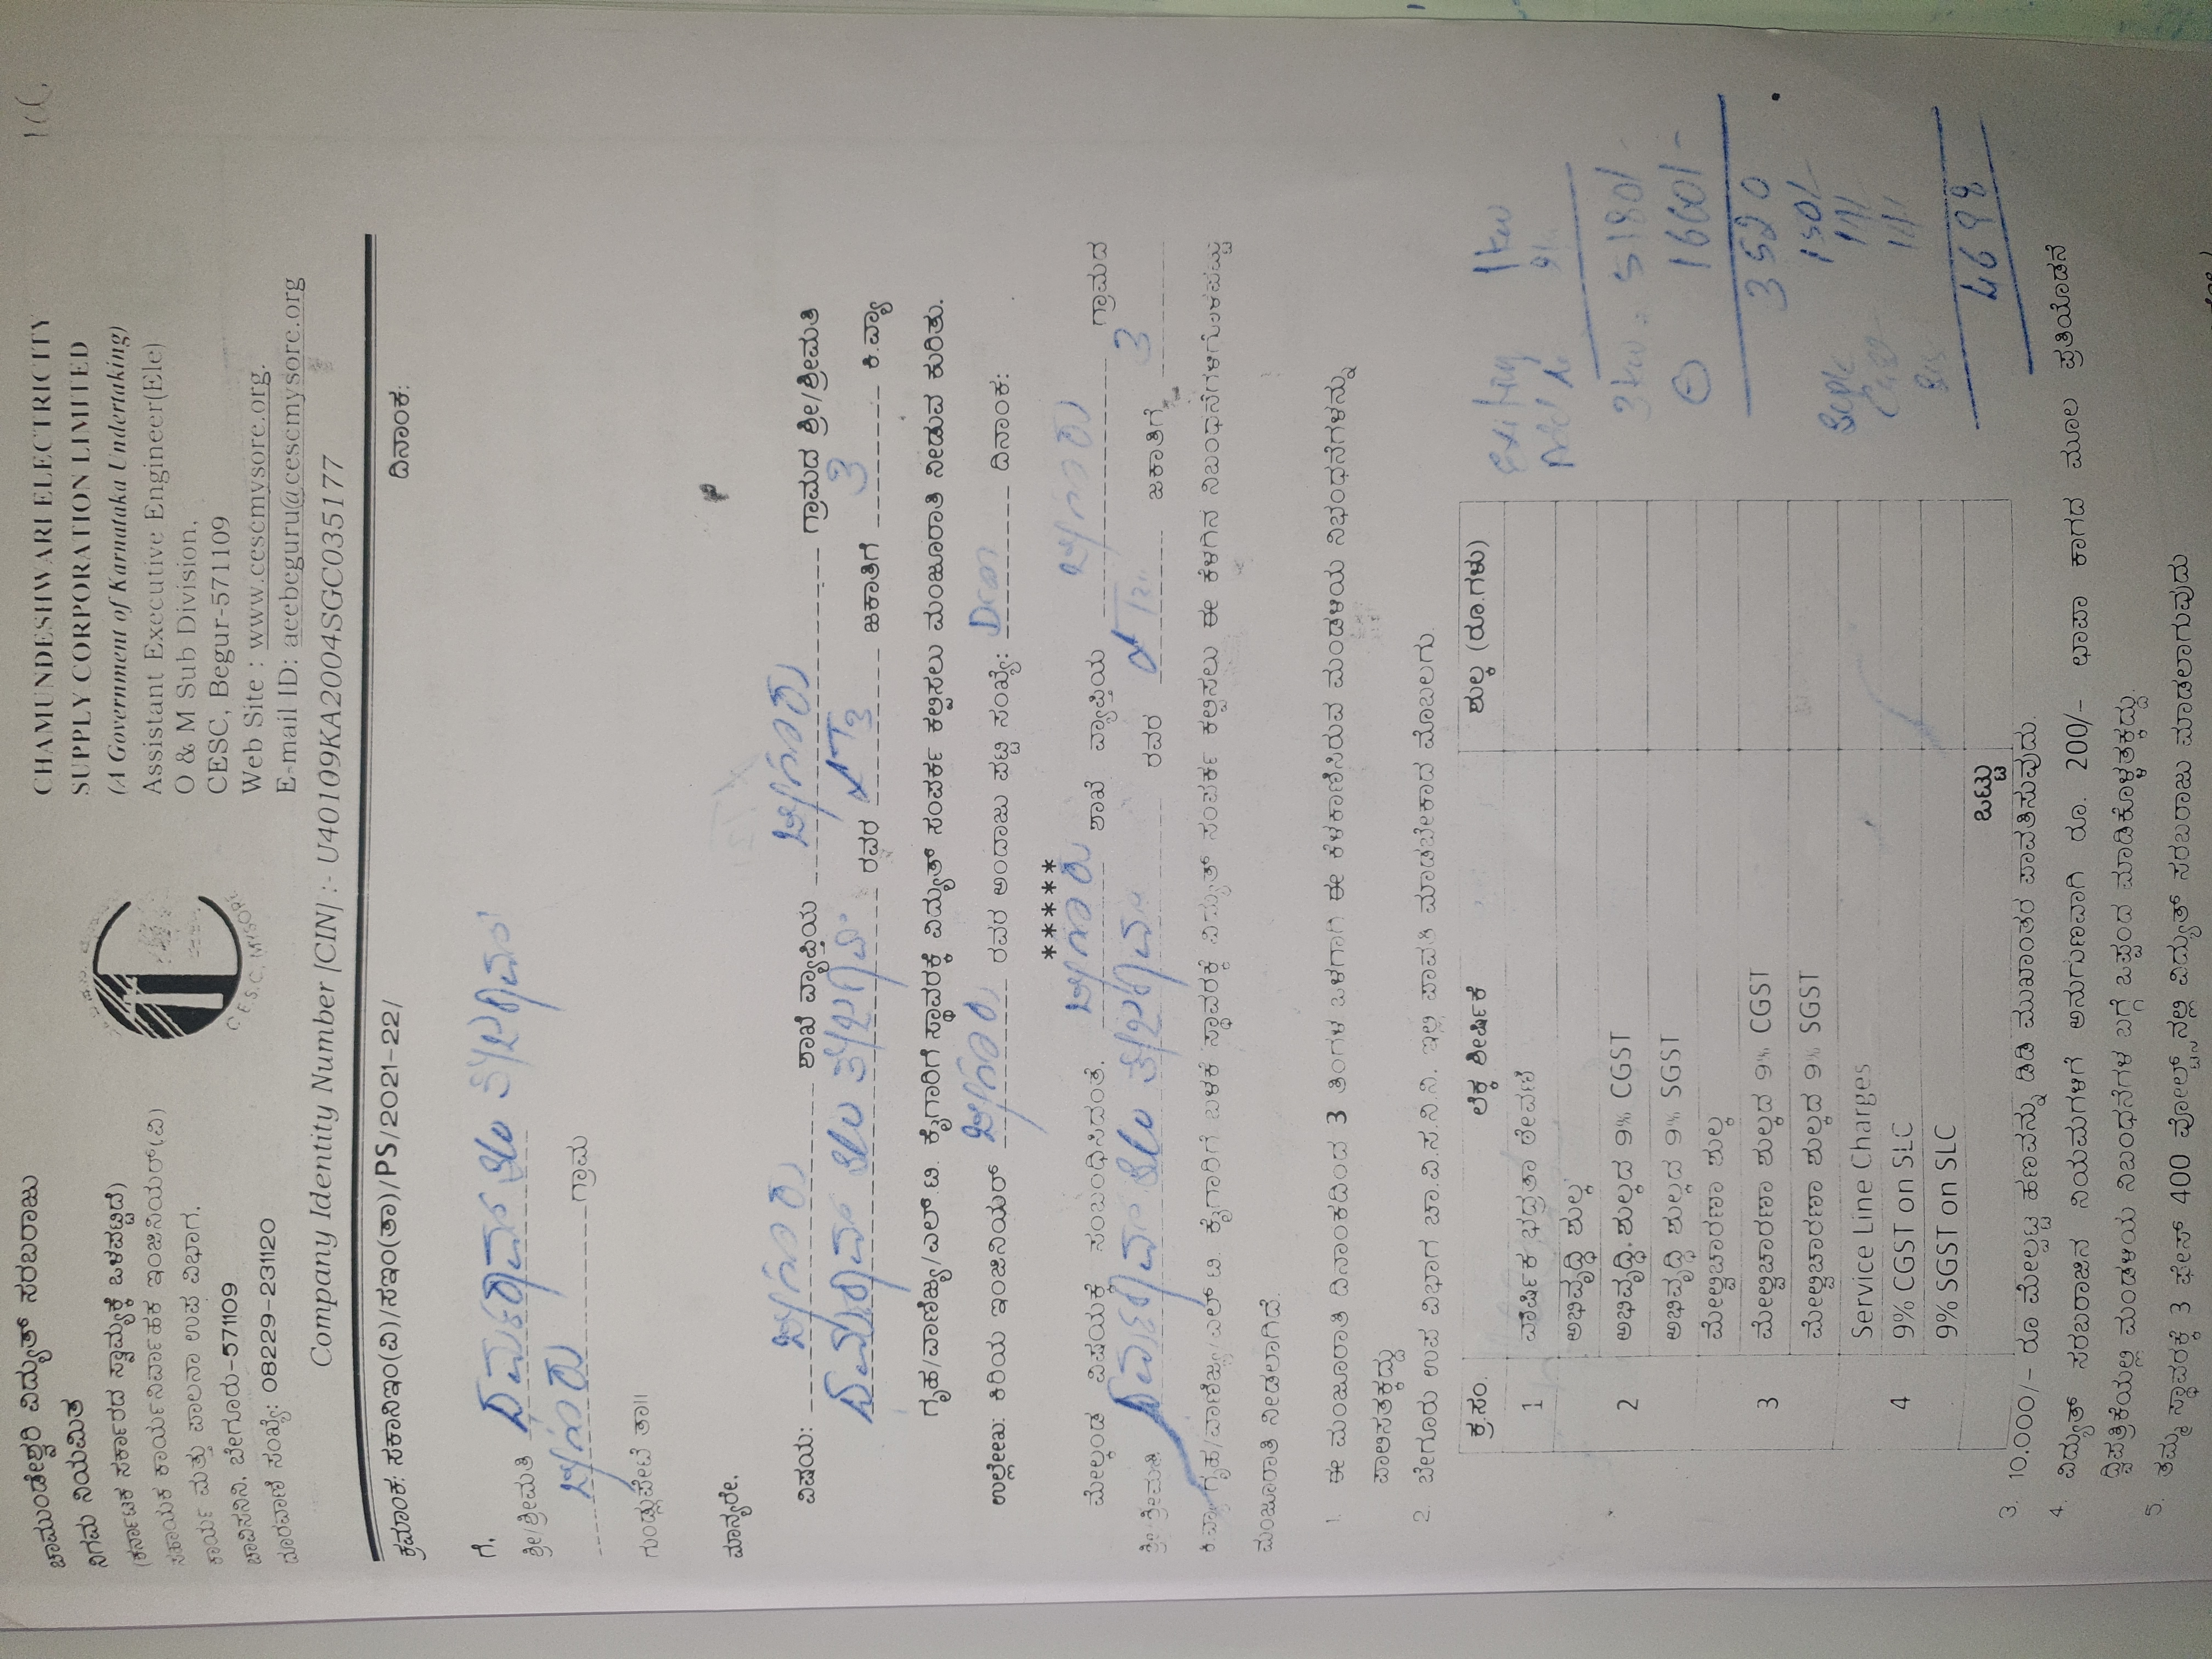 ಚಾಮುಂಡೇಶ್ವರಿ ವಿದ್ಯುತ್ ಸರಬರಾಜು
ನಿಗಮ ನಿಯಮಿತ
(ಕರ್ನಾಟಕ ಸರ್ಕಾರದ ಸ್ವಾಮ್ಯಕ್ಕೆ ಒಳಪಟ್ಟಿದೆ)
ಸಹಾಯಕ ಕಾರ್ಯನಿರ್ವಾಹಕ ಇಂಜಿನಿಯರ್(ವಿ)
ಕಾರ್ಯ ಮತ್ತು ಪಾಲನಾ ಉಪ ವಿಭಾಗ.
ಚಾವಿಸನಿನಿ. ಬೇಗೂರು-571109
ದೂರವಾಣಿ ಸಂಖ್ಯೆ: 08229-231120
C.E.S.C, MYSORE
CHAMUNDESHWARI ELECTRICITY
SUPPLY CORPORATION LIMITED
(A Government of Karnataka Undertaking)
Assistant Executive Engineer(Ele)
O & M Sub Division,
CESC, Begur-571109
Web Site : www.cescmysore.org.
E-mail ID: aeebeguru@cescmysore.org
Company Identity Number [CIN] :- U40109KA2004SGC035177
ಕ್ರಮಾಂಕ: ಸಕಾನಿಇಂ(ವಿ)/ಸಇಂ(ತಾ)/PS/2021-22/ ದಿನಾಂಕ:
ಗೆ,
ಶ್ರೀ/ಶ್ರೀಮತಿ
ಬೇಗೂರು ಗ್ರಾಮ
ಗುಂಡ್ಲುಪೇಟೆ ತಾ||
ಮಾನ್ಯರೇ,
ವಿಷಯ: ಬೇಗೂರು ಶಾಖೆ ವ್ಯಾಪ್ತಿಯ ಬೇಗೂರು ಗ್ರಾಮದ ಶ್ರೀ/ಶ್ರೀಮತಿ
ರವರ ಜಕಾತಿಗೆ 3 ಕಿ.ವ್ಯಾ
ಗೃಹ/ವಾಣಿಜ್ಯ/ಎಲ್.ಟಿ. ಕೈಗಾರಿಗೆ ಸ್ಥಾವರಕ್ಕೆ ವಿದ್ಯುತ್ ಸಂಪರ್ಕ ಕಲ್ಪಿಸಲು ಮಂಜೂರಾತಿ ನೀಡುವ ಕುರಿತು.
ಉಲ್ಲೇಖ: ಕಿರಿಯ ಇಂಜಿನಿಯರ್ ಬೇಗೂರು ರವರ ಅಂದಾಜು ಪಟ್ಟಿ ಸಂಖ್ಯೆ: ದಿನಾಂಕ:
******
ಮೇಲ್ಕಂಡ ವಿಷಯಕ್ಕೆ ಸಂಬಂಧಿಸಿದಂತೆ, ಬೇಗೂರು ಶಾಖೆ ವ್ಯಾಪ್ತಿಯ ಬೇಗೂರು ಗ್ರಾಮದ
ಶ್ರೀ/ಶ್ರೀಮತಿ ರವರ ಜಕಾತಿಗೆ 3
ಕಿ.ವ್ಯಾ ಗೃಹ/ವಾಣಿಜ್ಯ/ಎಲ್.ಟಿ. ಕೈಗಾರಿಗೆ ಬಳಕೆ ಸ್ಥಾವರಕ್ಕೆ ವಿದ್ಯುತ್ ಸಂಪರ್ಕ ಕಲ್ಪಿಸಲು ಈ ಕೆಳಗಿನ ನಿಬಂಧನೆಗಳಿಗೊಳಪಟ್ಟು
ಮಂಜೂರಾತಿ ನೀಡಲಾಗಿದೆ.
1. ಈ ಮಂಜೂರಾತಿ ದಿನಾಂಕದಿಂದ 3 ತಿಂಗಳ ಒಳಗಾಗಿ ಈ ಕೆಳಕಾಣಿಸಿರುವ ಮಂಡಳಿಯ ನಿಭಂಧನೆಗಳನ್ನು
ಪಾಲಿಸತಕ್ಕದ್ದು
2. ಬೇಗೂರು ಉಪ ವಿಭಾಗ ಚಾ.ವಿ.ಸ.ನಿ.ನಿ. ಇಲ್ಲಿ ಪಾವತಿ ಮಾಡಬೇಕಾದ ಮೊಬಲಗು
ಕ್ರ.ಸಂ. ಲೆಕ್ಕ ಶೀರ್ಷಿಕೆ ಶುಲ್ಕ (ರೂ.ಗಳು)
1 ವಾರ್ಷಿಕ ಭದ್ರತಾ ಠೇವಣಿ
ಅಭಿವೃದ್ಧಿ ಶುಲ್ಕ
2 ಅಭಿವೃದ್ಧಿ ಶುಲ್ಕದ 9% CGST
ಅಭಿವೃದ್ಧಿ ಶುಲ್ಕದ 9% SGST
ಮೇಲ್ವಿಚಾರಣಾ ಶುಲ್ಕ
3 ಮೇಲ್ವಿಚಾರಣಾ ಶುಲ್ಕದ 9% CGST
ಮೇಲ್ವಿಚಾರಣಾ ಶುಲ್ಕದ 9% SGST
Service Line Charges
4 9% CGST on SLC
9% SGST on SLC
ಒಟ್ಟು
Existing 1kw
3kw 5180/-
1660/-
3520
150/-
4698
3. 10,000/- ರೂ ಮೇಲ್ಪಟ್ಟ ಹಣವನ್ನು ಡಿಡಿ ಮುಖಾಂತರ ಪಾವತಿಸುವುದು.
4. ವಿದ್ಯುತ್ ಸರಬರಾಜಿನ ನಿಯಮಗಳಿಗೆ ಅನುಗುಣವಾಗಿ ರೂ. 200/- ಛಾಪಾ ಕಾಗದ ಮೂಲ ಪ್ರತಿಯೊಡನೆ
ದ್ವಿಪತ್ರಿಕೆಯಲ್ಲಿ ಮಂಡಳಿಯ ನಿಬಂಧನೆಗಳ ಬಗ್ಗೆ ಒಪ್ಪಂದ ಮಾಡಿಕೊಳ್ಳತಕ್ಕದ್ದು.
5. ತಮ್ಮ ಸ್ಥಾವರಕ್ಕೆ 3 ಫೇಸ್ 400 ವೋಲ್ಟ್ ನಲ್ಲಿ ವಿದ್ಯುತ್ ಸರಬರಾಜು ಮಾಡಲಾಗುವುದು